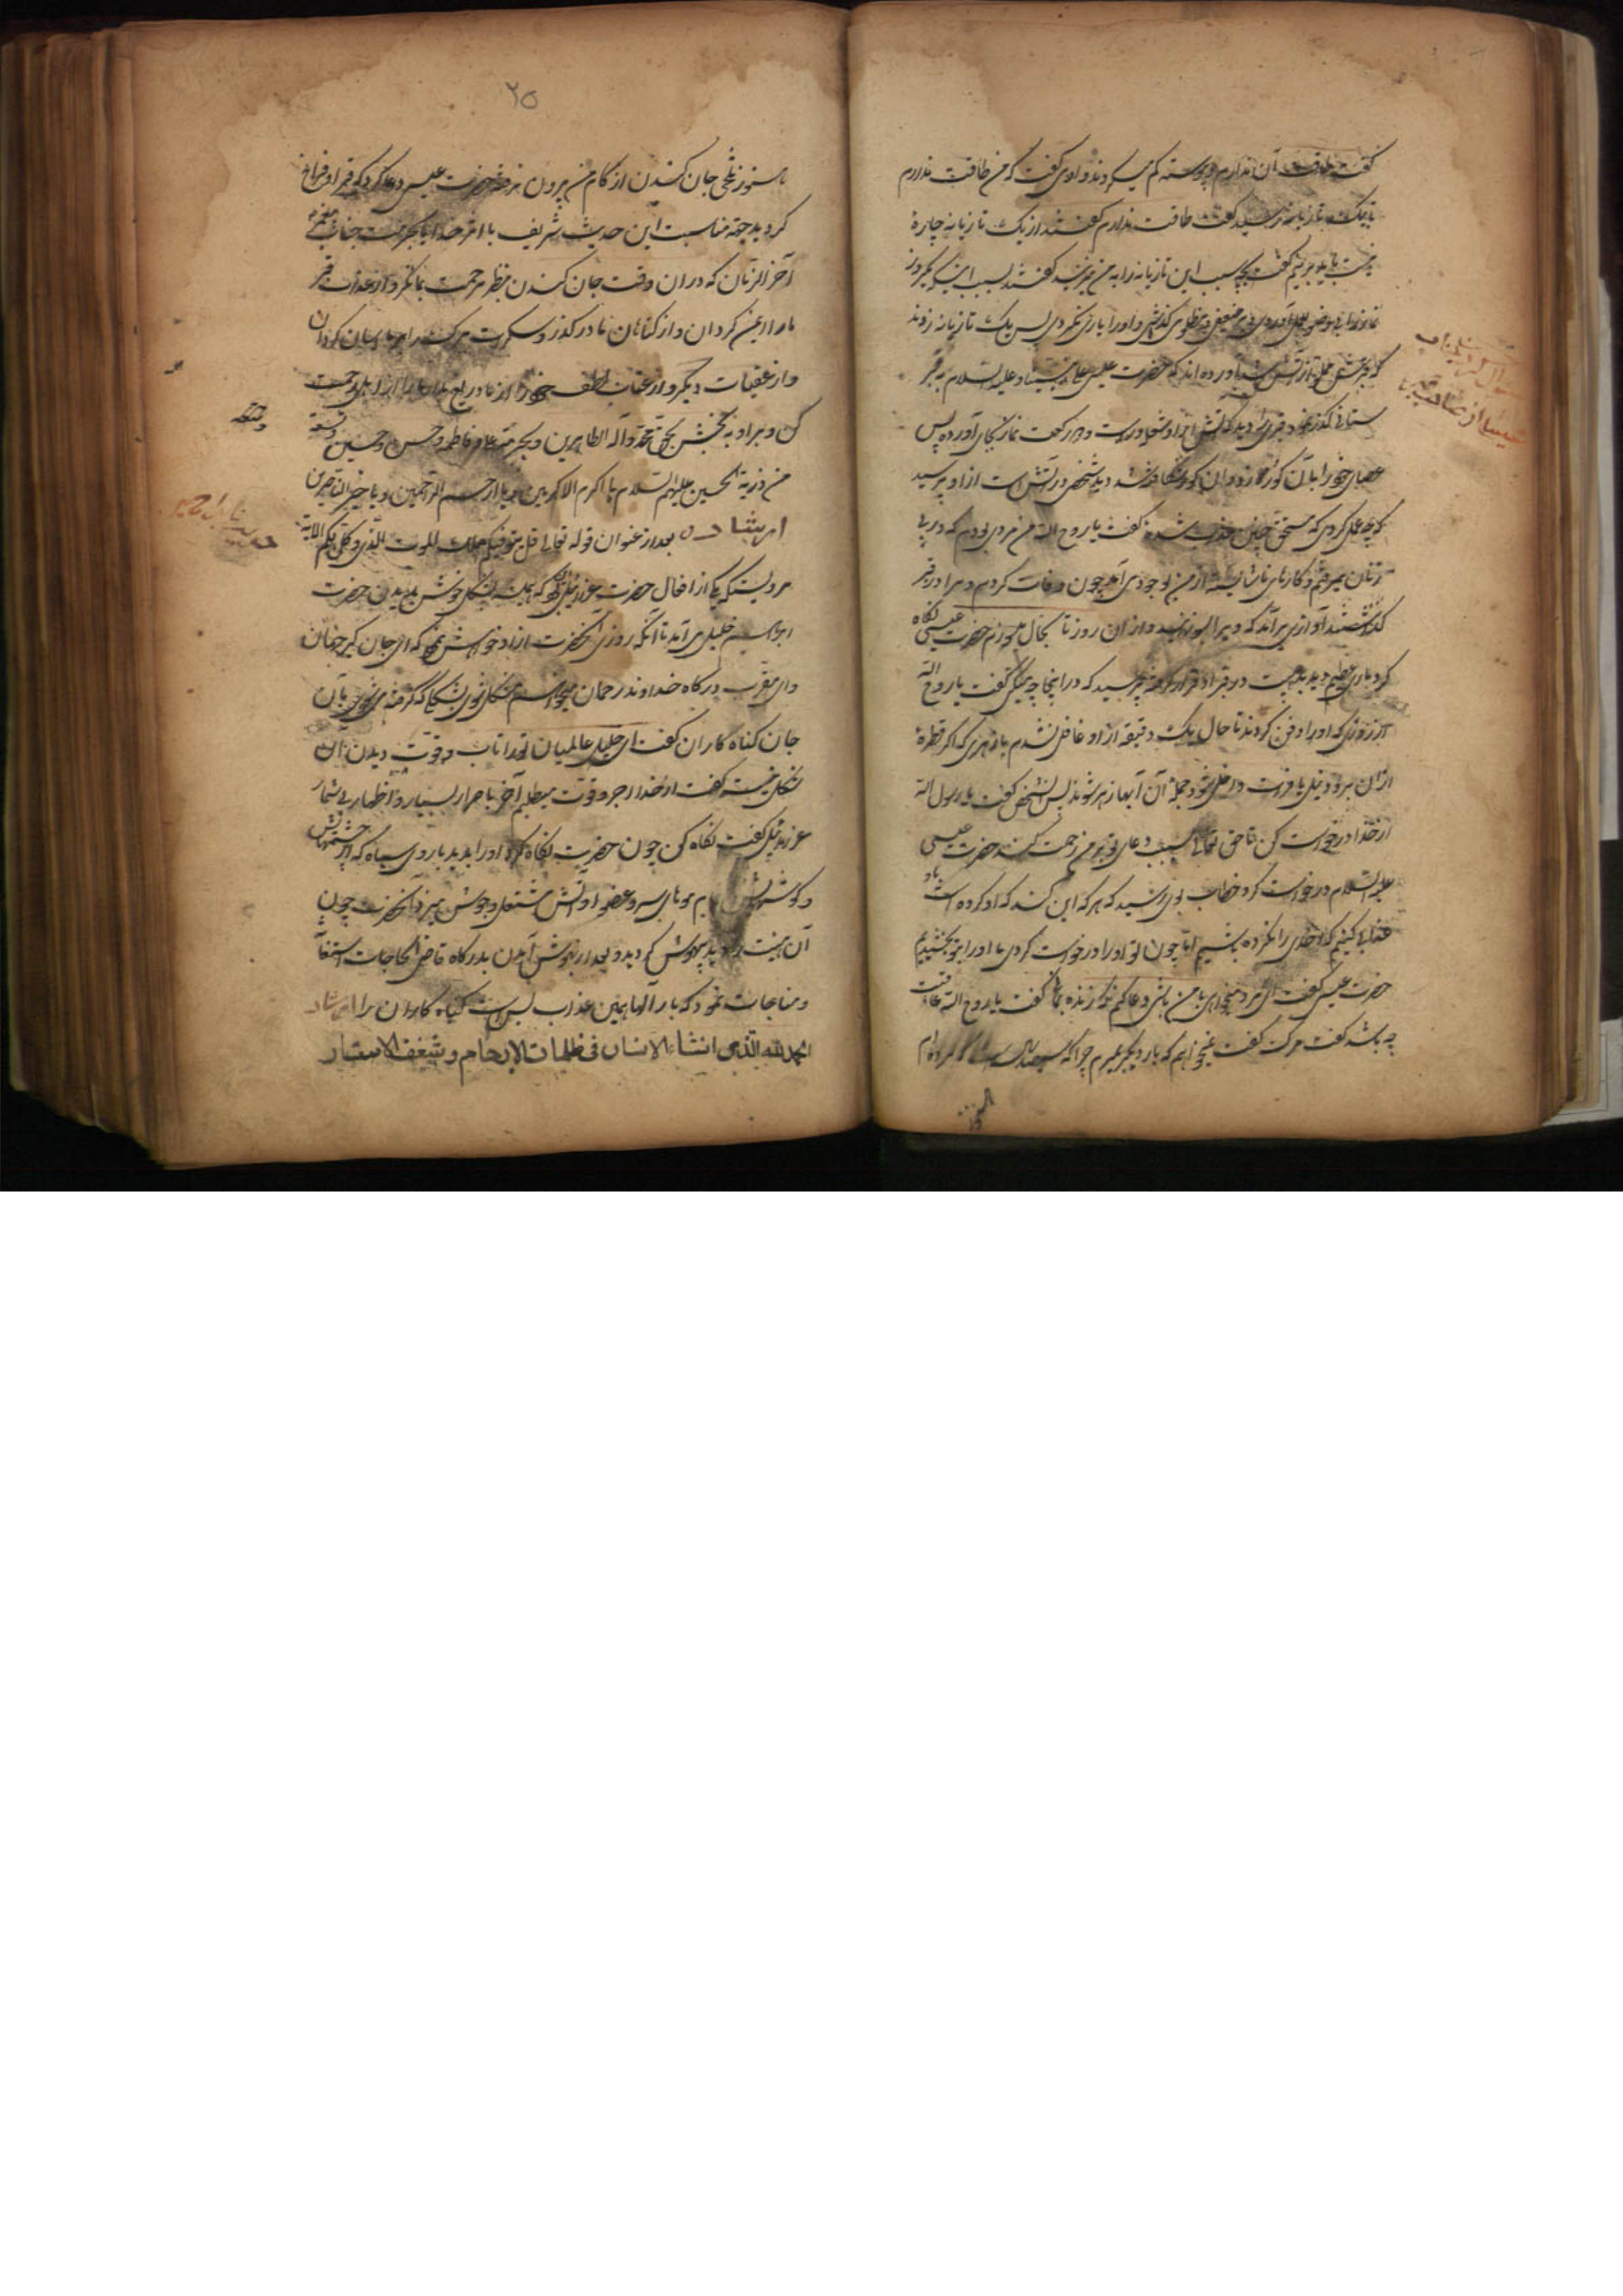 گفت طاقت آن ندارم و پیوسته کم میکردند و او می گفت که من طاقت ندارم
تا بیک تازیانه رسید گفت طاقت ندارم گفتند از یک تازیانه چاره
نیست باید بزنیم گفت بچه سبب این تازیانه را به من میزنید گفتند بسبب اینکه یکروز
نماز را بی وضو بعمل آوردی و بر ضعیفی و مظلومی گذشتی و او را یاری نکردی پس یک تازیانه زدند
که قبرش مملو از آتش شد آورده اند که حضرت عیسی علی نبینا و علیه السلام به قبر
ستانی گذر نمود قبری را دید که آتش از او شعله ور است دو رکعت نماز بجای آورده پس
عصای خود را بآن گور زد و آن گور شکافته شد دید شخصی در آتش است از او پرسید
که چه عمل کردی که مستحق چنین عذاب شده گفت یا روح الله من مردی بودم که در پی
زنان میرفتم و کارهای ناشایسته از من بوجود می آمد چون وفات کردم و مرا در قبر
گذاشتند آوازی برآمد که ویرا بسوزانید و از آن روز تا بحال میسوزم حضرت عیسی نگاه
کرد ماری عظیم دید در قبر او قرار گرفته پرسید که در اینجا چه میکنی گفت یا روح الله
از روزی که او را دفن کردند تا حال یک دقیقه از او غافل نشدم با زهری که اگر قطرهٔ
از آن برود نیل یا فرات داخل شود جملهٔ آن آبها زهر شوند پس آن شخص گفت یا رسول الله
از خدا درخواست کن تا حق تعالی بسبب دعای تو بر من رحمت کند حضرت عیسی
علیه السلام درخواست کرد خطاب بوی رسید که هر که این کند که او کرده است باو
عذابی کنیم که احدی را نکرده باشیم اما چون تو او را درخواست کردی ما او را بتو بخشیدیم
حضرت عیسی گفت ای مرد میخواهی با من باشی دعا کنم تو را زنده نماید گفت یا روح الله عاقبت
چه باشد گفت مرگ گفت نمیخواهم که بار دیگر بمیرم چرا که سال است که مرده ام
هنوز
۲۵
هنوز تلخی جان کندن از کام من بیرون نرفته حضرت عیسی دعا کرد که قبر او فراخ
گردید جهة مناسبت این حدیث شریف با امر خدایا بحرمت جناب پیغمبر
آخر الزمان که در آن وقت جان کندن بنظر مرحمت بما نگر و از عذاب قبر
ما را ایمن گردان و از گناهان ما در گذر و سکرت مرگ را بر ما آسان گردان
و از عقبات دیگر و از عتاب لطف خود را از ما دریغ مدار ما را از اهل رحمت
کن و مراد به بخش بحق محمد و آله الطاهرین و بحرمت علی و فاطمه و حسن و حسین و تسعة
من ذریة الحسین علیهم السلام یا اکرم الاکرمین و یا ارحم الراحمین و یا خیر الناصرین
ارشاد بعد از عنوان قوله تعالی قل یتوفیکم ملک الموت الذی وکل بکم الایة
مرویست که یکی از افعال حضرت عزرائیل آن بود که همیشه بشکل خوش بدیدن حضرت
ابراهیم خلیل می آمد تا آنکه روزی آنحضرت از او خواهش نمود که ای جان گیر جهان
و ای مقرب درگاه خداوند رحمان میخواهم شکل توی بشکلی که گرفته میشوی بآن
جان گناه کاران گفت ای خلیل عالمیان تو را تاب و قوت دیدن آن
شکل نیست گفت از خدا اجر و قوت میطلبم آخر با صرار بسیار و اظهار بی شمار
عزرائیل گفت نگاه کن چون حضرت نگاه کرد او را بدید با روی سیاه که از چشمهاش
و گوشهاش تمام موهای سر و عضو او آتش مشتعل و جوش میزد آنحضرت چون
آن هیئت را دید بیهوش گردید و بعد از بهوش آمدن بدرگاه قاضی الحاجات استغاثه
و مناجات نمود که بار الها همین عذاب بس است گناه کاران را ارشاد
الحمد لله الذی انشاء الانسان فی ظلمات الارحام و شغف الاستار